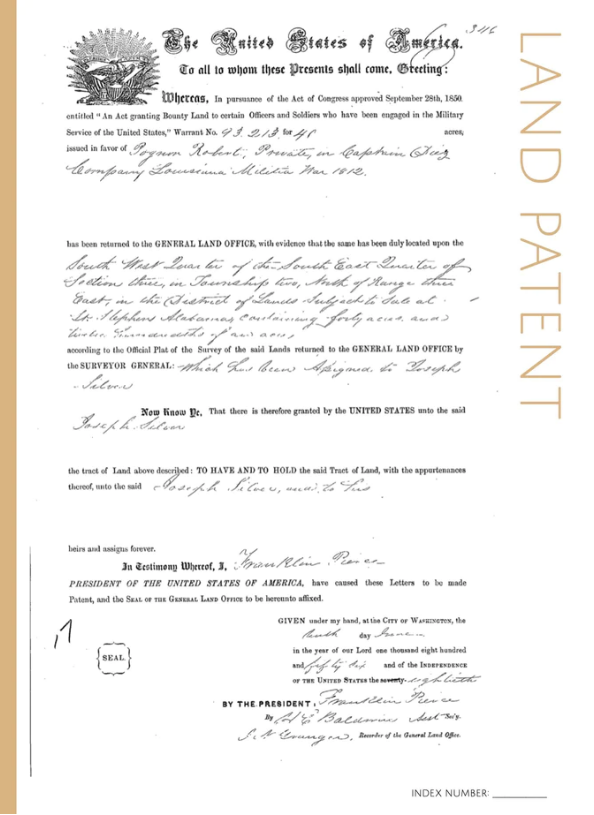 346
The United States of America.
To all to whom these Presents shall come, Greeting:
Whereas, In pursuance of the Act of Congress approved September 28th, 1850,
entitled "An Act granting Bounty Land to certain Officers and Soldiers who have been engaged in the Military
Service of the United States," Warrant No. 93,213 for 40 acres,
issued in favor of Robert, Private, in Captain
Company Louisiana Militia War 1812.
has been returned to the GENERAL LAND OFFICE, with evidence that the same has been duly located upon the
South West Quarter of the South East Quarter of
Section three, in Township two, North of Range three
East, in the District of Lands Subject to Sale at
St. Stephens Alabama, containing forty acres, and
twelve hundredths of an acre,
according to the Official Plat of the Survey of the said Lands returned to the GENERAL LAND OFFICE by
the SURVEYOR GENERAL: Which has been Assigned to Joseph
Silver
Now Know Ye, That there is therefore granted by the UNITED STATES unto the said
Joseph Silver
the tract of Land above described: TO HAVE AND TO HOLD the said Tract of Land, with the appurtenances
thereof, unto the said Joseph Silver, and to his
heirs and assigns forever.
In Testimony Whereof, I, Franklin Pierce
PRESIDENT OF THE UNITED STATES OF AMERICA, have caused these Letters to be made
Patent, and the SEAL OF THE GENERAL LAND OFFICE to be hereunto affixed.
GIVEN under my hand, at the CITY OF WASHINGTON, the
day
in the year of our Lord one thousand eight hundred
and fifty six and of the INDEPENDENCE
OF THE UNITED STATES the seventy eightieth
SEAL.
BY THE PRESIDENT, Franklin Pierce
By Baldwin Asst Sec'y.
J. N. Granger, Recorder of the General Land Office.
LAND PATENT
INDEX NUMBER: